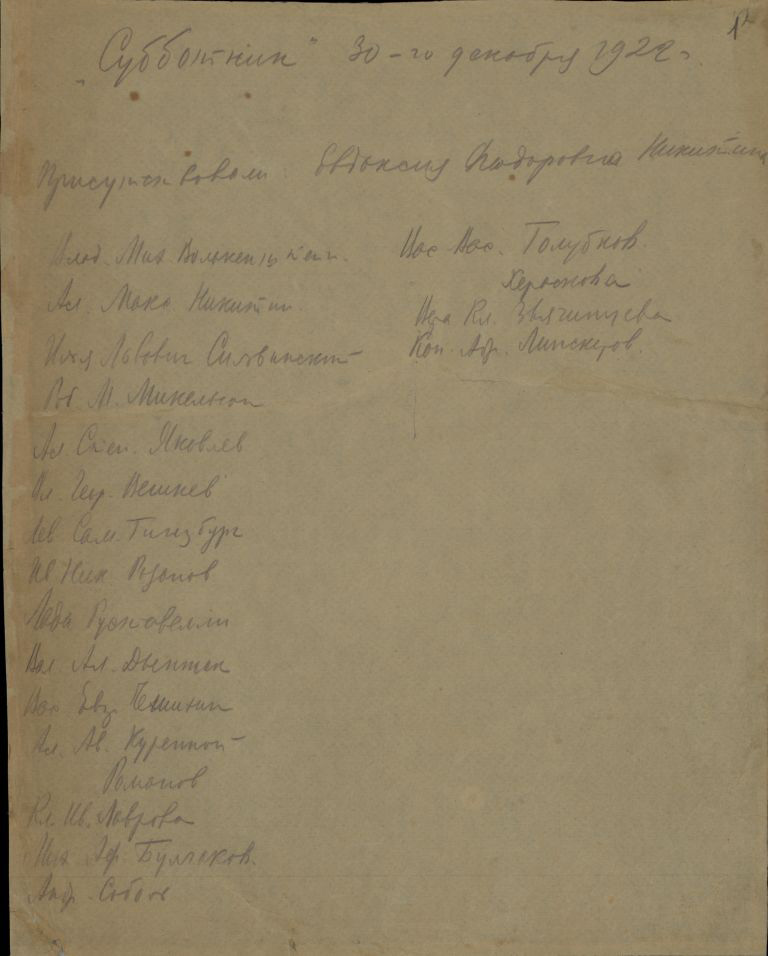 „Субботник" 30-го декабря 1922 г.
Присутствовали: Евдоксия Федоровна Никитина
Влад. Мих. Волькенштейн.
Ал. Макс. Никитин.
Илья Львович Сельвинский
Ал. Степ. Яковлев
Вл. Геор. Вешнев
Лев Сам. Гинзбург
Ив Ник Розанов
Леда Руставелли
Вал. Ал. Дынник
Вас Евг. Чешихин
Ал. Ав. Куренной
Романов
Кл. Ив. Лаврова
Мих Аф. Булгаков.
Андр. Соболь
Вас Вас. Голубков.
Вера Кл. Звягинцева
Кон. Абр. Липскеров.